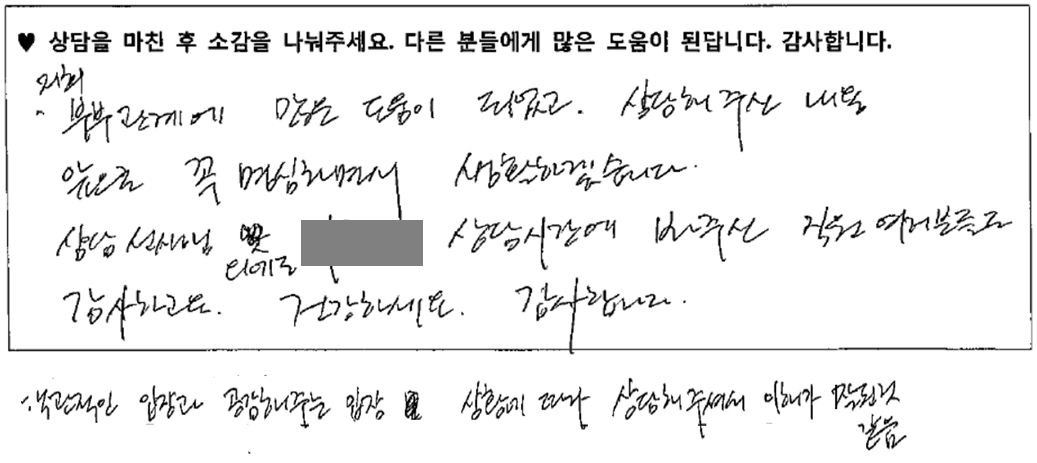 ♥ 상담을 마친 후 소감을 나눠주세요. 다른 분들에게 많은 도움이 된답니다. 감사합니다.
저희
부부관계에 많은 도움이 되었고. 상담해주신 내용
앞으로 꼭 명심하면서 생활하겠습니다.
상담 선생님 및
상담시간에 봐주신 직원 여러분들도
감사하고요. 건강하세요. 감사합니다.
객관적인 입장과 공감해주는 입장 상황에 따라 상담해주셔서 이해가 잘된것
같음